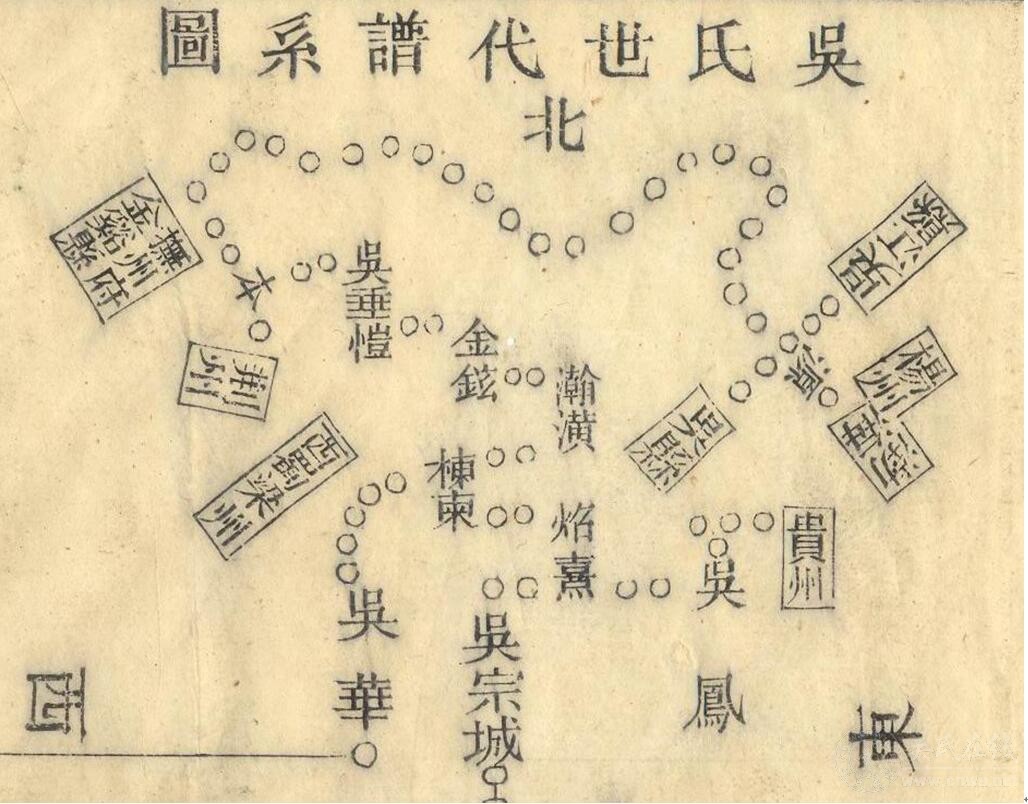 吳氏世代譜系圖
北
撫州府
金谿縣
本
荆州
西蜀梁州
吳垂愷
金鉉
瀚潢
棟柬
焰熹
吳華
吳宗城
吳鳳
吳江縣
源
楊州
吳縣
貴州
東
西